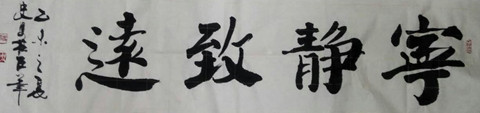 寧静致遠
乙未之夏